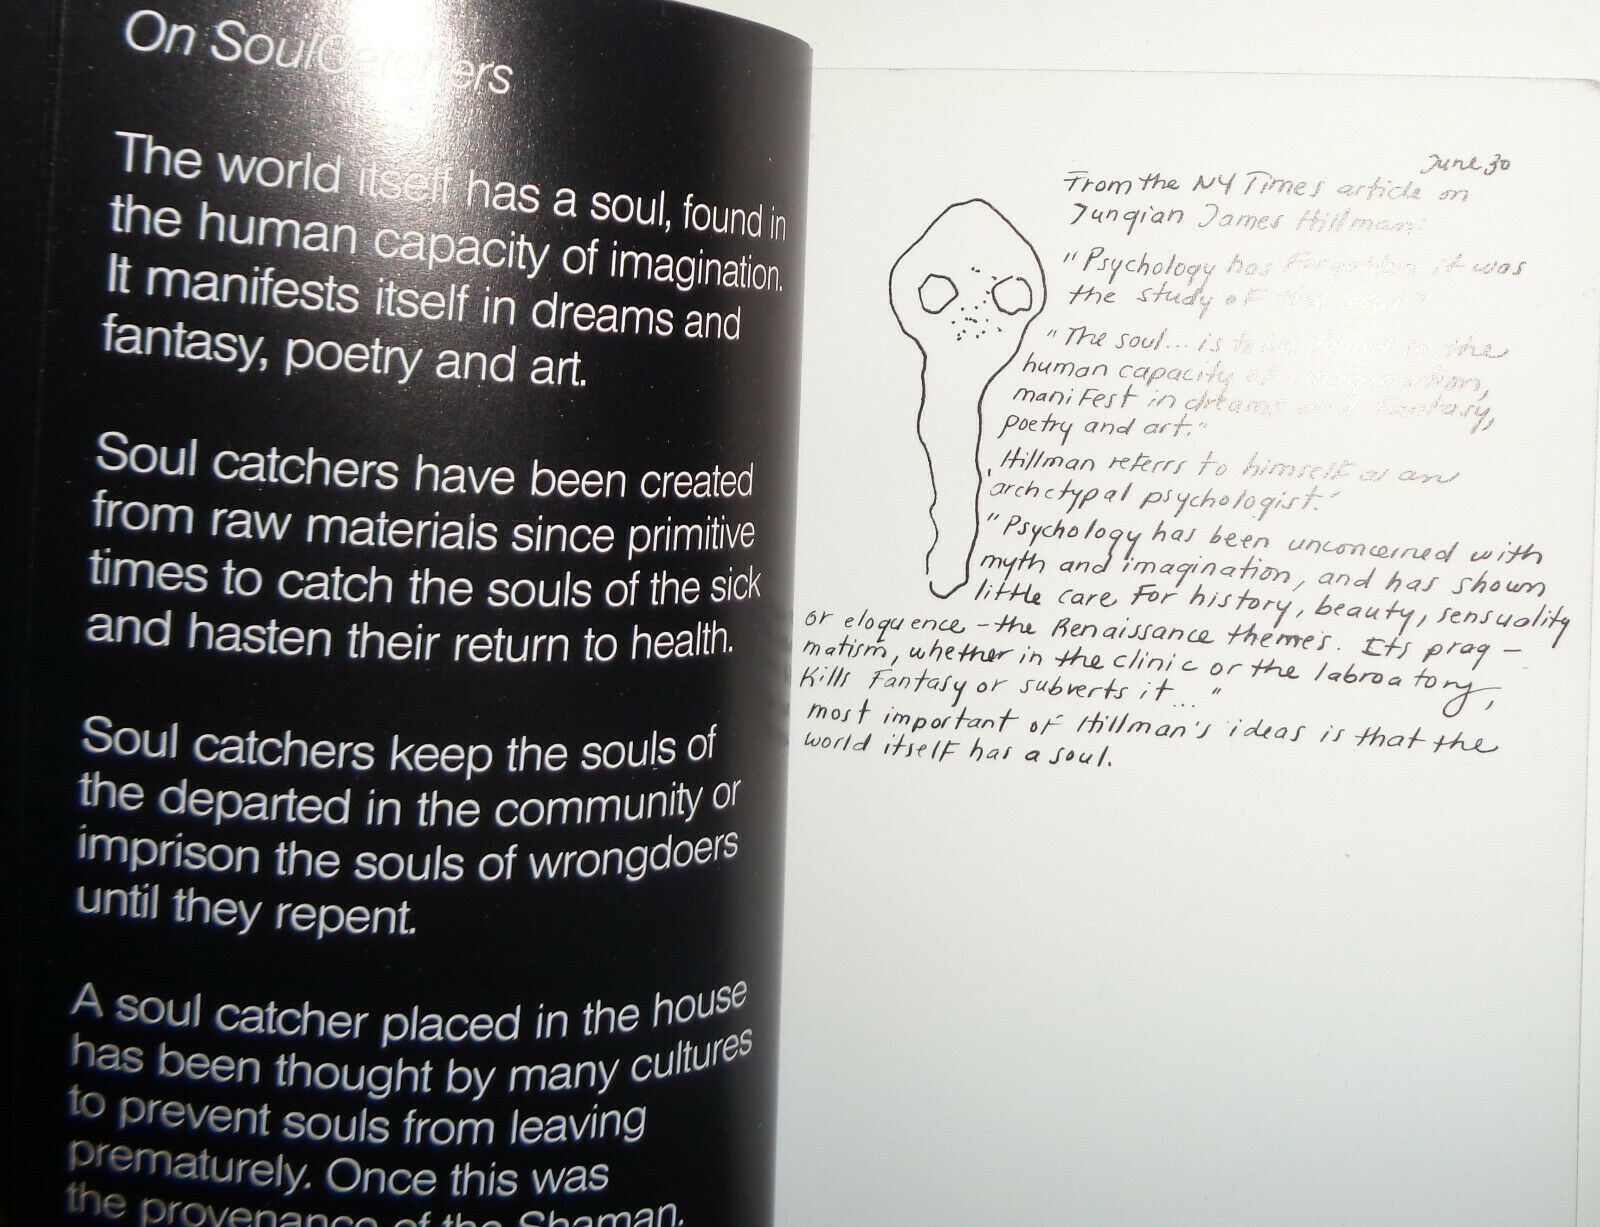 On SoulCatchers
The world itself has a soul, found in
the human capacity of imagination.
It manifests itself in dreams and
fantasy, poetry and art.
Soul catchers have been created
from raw materials since primitive
times to catch the souls of the sick
and hasten their return to health.
Soul catchers keep the souls of
the departed in the community or
imprison the souls of wrongdoers
until they repent.
A soul catcher placed in the house
has been thought by many cultures
to prevent souls from leaving
prematurely. Once this was
the provenance of the Shaman.
June 30
From the NY Times article on
Jungian James Hillman:
"Psychology has forgotten it was
the study of the soul"
"The soul... is to be found in the
human capacity of imagination,
manifest in dreams and fantasy,
poetry and art."
Hillman referrs to himself as an
archetypal psychologist.
"Psychology has been unconcerned with
myth and imagination, and has shown
little care for history, beauty, sensuality
or eloquence - the Renaissance themes. Its prag-
matism, whether in the clinic or the labroatory,
kills fantasy or subverts it..."
most important of Hillman's ideas is that the
world itself has a soul.